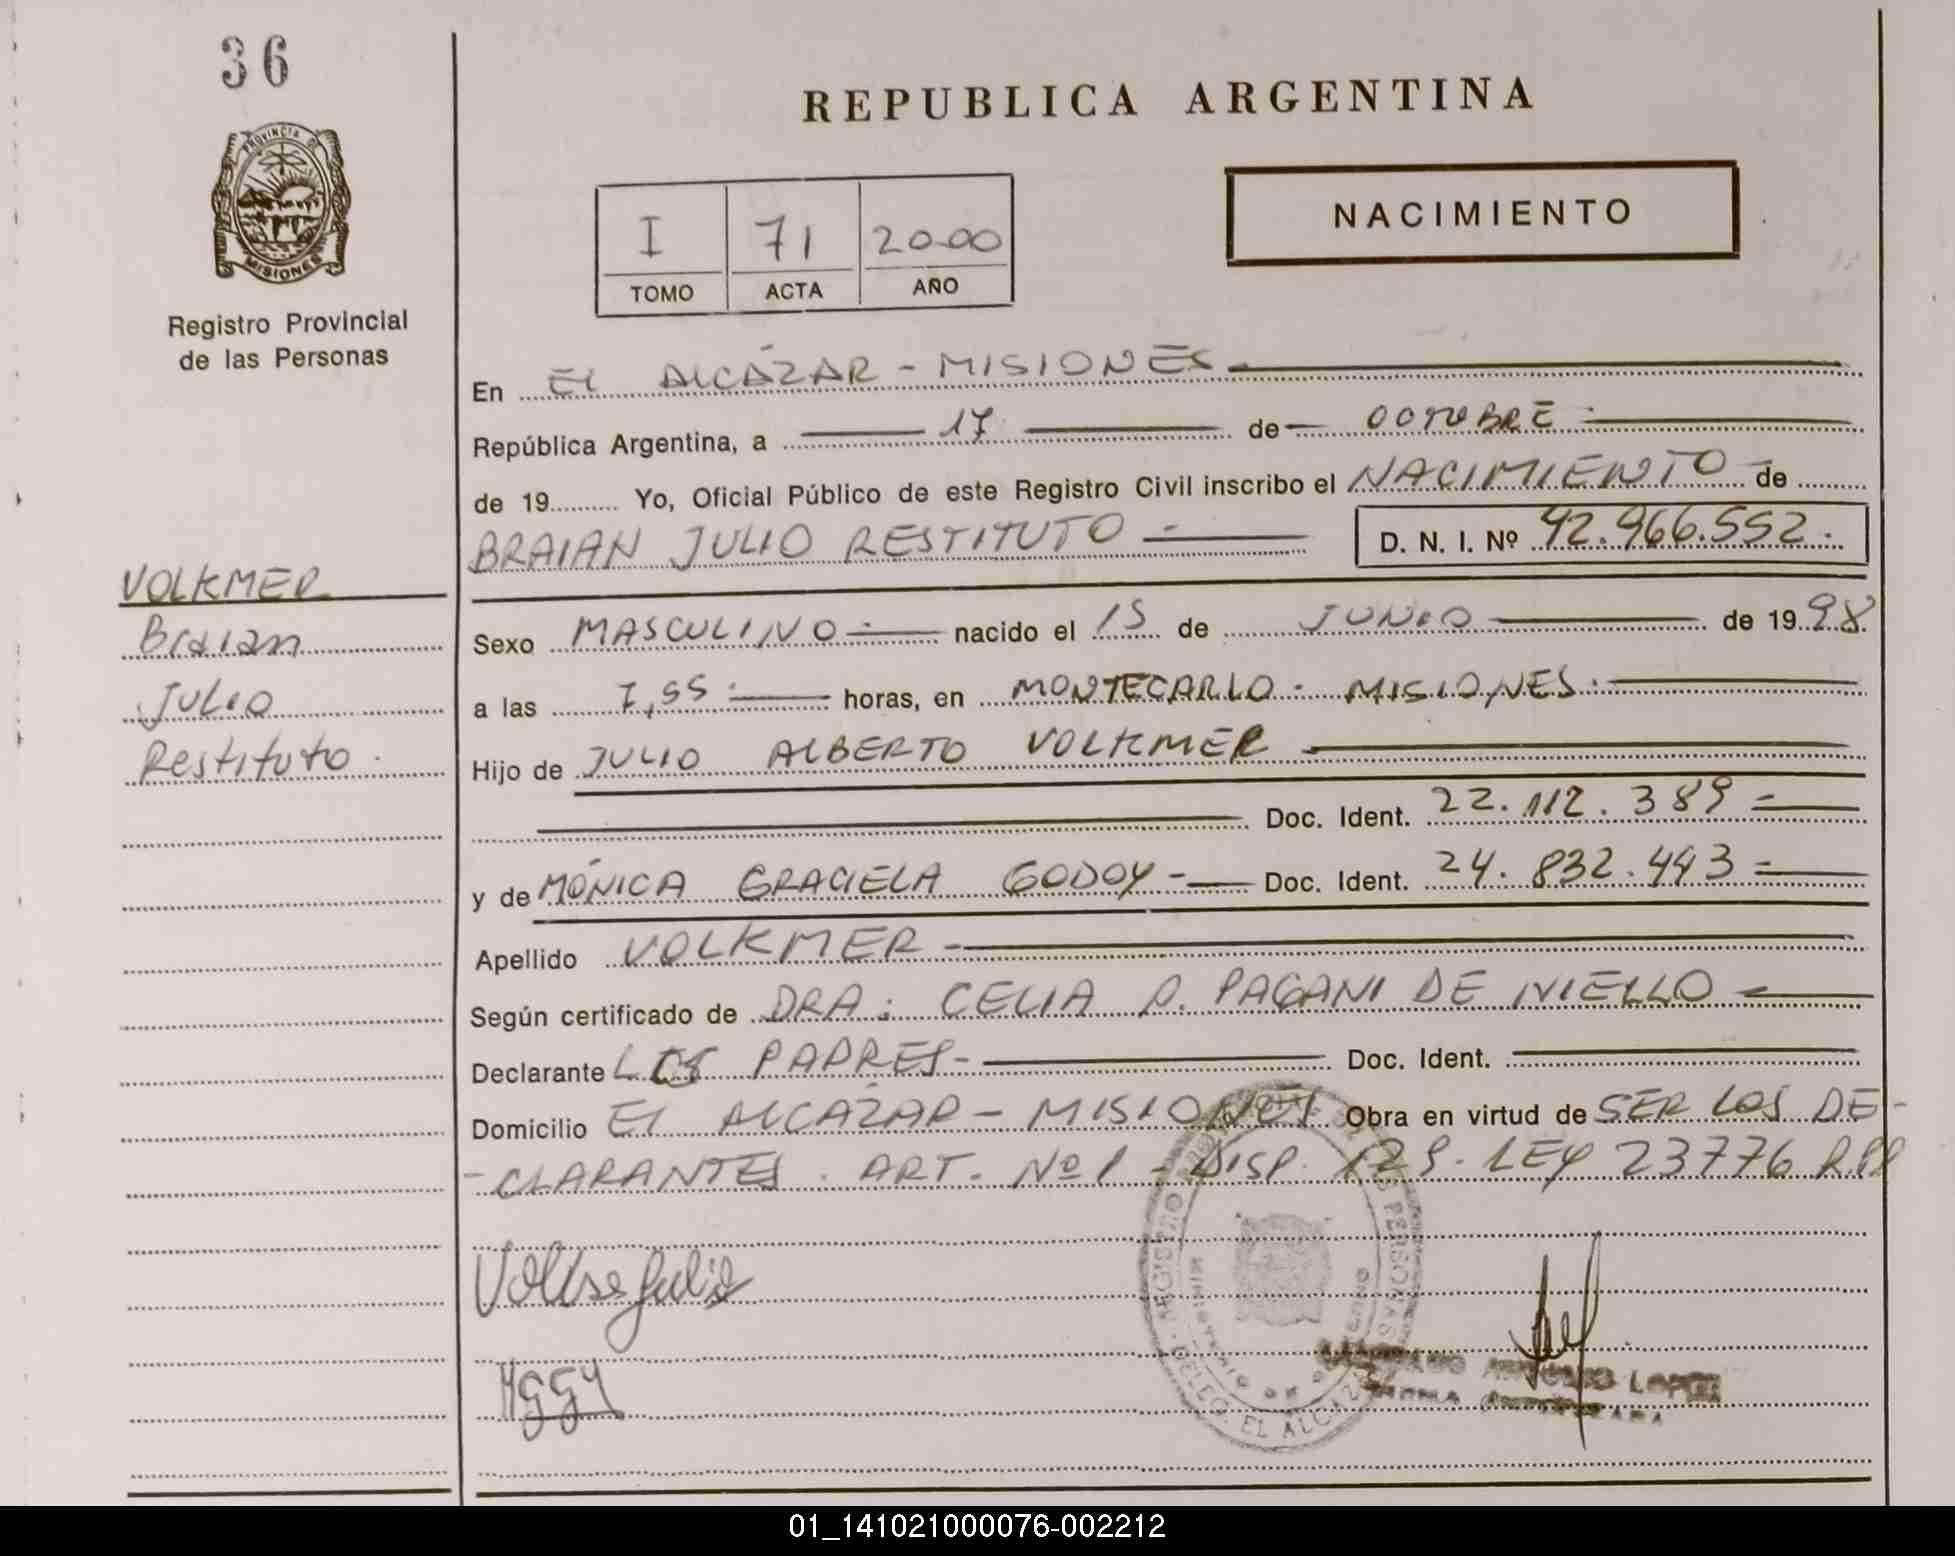 36
REPUBLICA ARGENTINA
PROVINCIA DE
MISIONES
Registro Provincial
de las Personas
I 71 2000
TOMO ACTA AÑO
NACIMIENTO
En EL ALCÁZAR - MISIONES
República Argentina, a 17 de OCTUBRE
de 19 Yo, Oficial Público de este Registro Civil inscribo el NACIMIENTO de
BRAIAN JULIO RESTITUTO D. N. I. Nº 42.966.552.
VOLKMER
Braian
Julio
Restituto
Sexo MASCULINO nacido el 15 de JUNIO de 1998
a las 7,55 horas, en MONTECARLO - MISIONES
Hijo de JULIO ALBERTO VOLKMER
Doc. Ident. 22.112.389
y de MÓNICA GRACIELA GODOY Doc. Ident. 24.832.443
Apellido VOLKMER
Según certificado de DRA: CELIA P. PAGANI DE NIELLO
Declarante LOS PADRES Doc. Ident.
Domicilio EL ALCÁZAR - MISIONES Obra en virtud de SER LOS DE-
-CLARANTES. ART. Nº 1 - DISP. 129. LEY 23776
REGISTRO PERSONAS
MINISTERIO DE GOBIERNO
DELEG. EL ALCAZAR
Julio
MGGY
LOPEZ
01_141021000076-002212